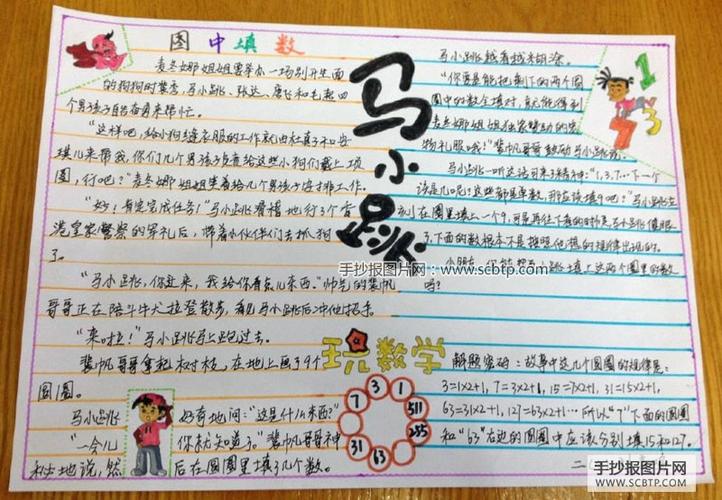 图中填数
麦冬娜姐姐要举办一场别开生面
的狗狗时装秀,马小跳、张达、唐飞和毛超四
个男孩子自告奋勇来帮忙。
“这样吧,给小狗缝衣服的工作就由杜真子和安
琪儿来帮我,你们几个男孩子负责给这些小狗们戴上项
圈,行吧?”麦冬娜姐姐笑着给几个男孩子安排工作。
“好!肯定完成任务!”马小跳滑稽地行了个香
港皇家警察的军礼后,带着小伙伴们去抓狗
了。
“马小跳,你过来,我给你看点儿东西。”帅气的裴帆
哥哥正在陪斗牛犬拉登散步,看见马小跳后冲他招手。
“来啦!”马小跳马上跑过去。
裴帆哥哥拿起树枝,在地上画了9个
圆圈。
马小跳好奇地问:“这是什么东西?”
“一会儿你就知道了。”裴帆哥哥神
秘地说,然后在圆圈里填了几个数。
马小跳
玩数学
1
3
7
31
63
255
511
马小跳越看越糊涂。
“你要是能把剩下的两个圆
圈中的数全填对,就能得到
麦冬娜姐姐独家赞助的宠
物礼服哦!”裴帆哥哥鼓励马小跳说。
马小跳一听这话可来了精神:“1,3,7…下一个
该是几呢?这些都是单数,那应该填9吧?”马小跳在
圆圈里填上一个9,可是再往下看的时候,马小跳傻眼
了,下面的数根本不是按照他想的规律出现的。
小朋友,你能帮马小跳填上这两个圆圈里的数
吗?
解题密码:故事中这几个圆圈的规律是:
3=1×2+1,7=3×2+1,15=7×2+1,31=15×2+1,
63=31×2+1,127=63×2+1…所以“7”下面的圆圈
和“63”右边的圆圈中应该分别填15和127。
1
3
手抄报图片网:www.scbtp.com
手抄报图片网
WWW.SCBTP.COM